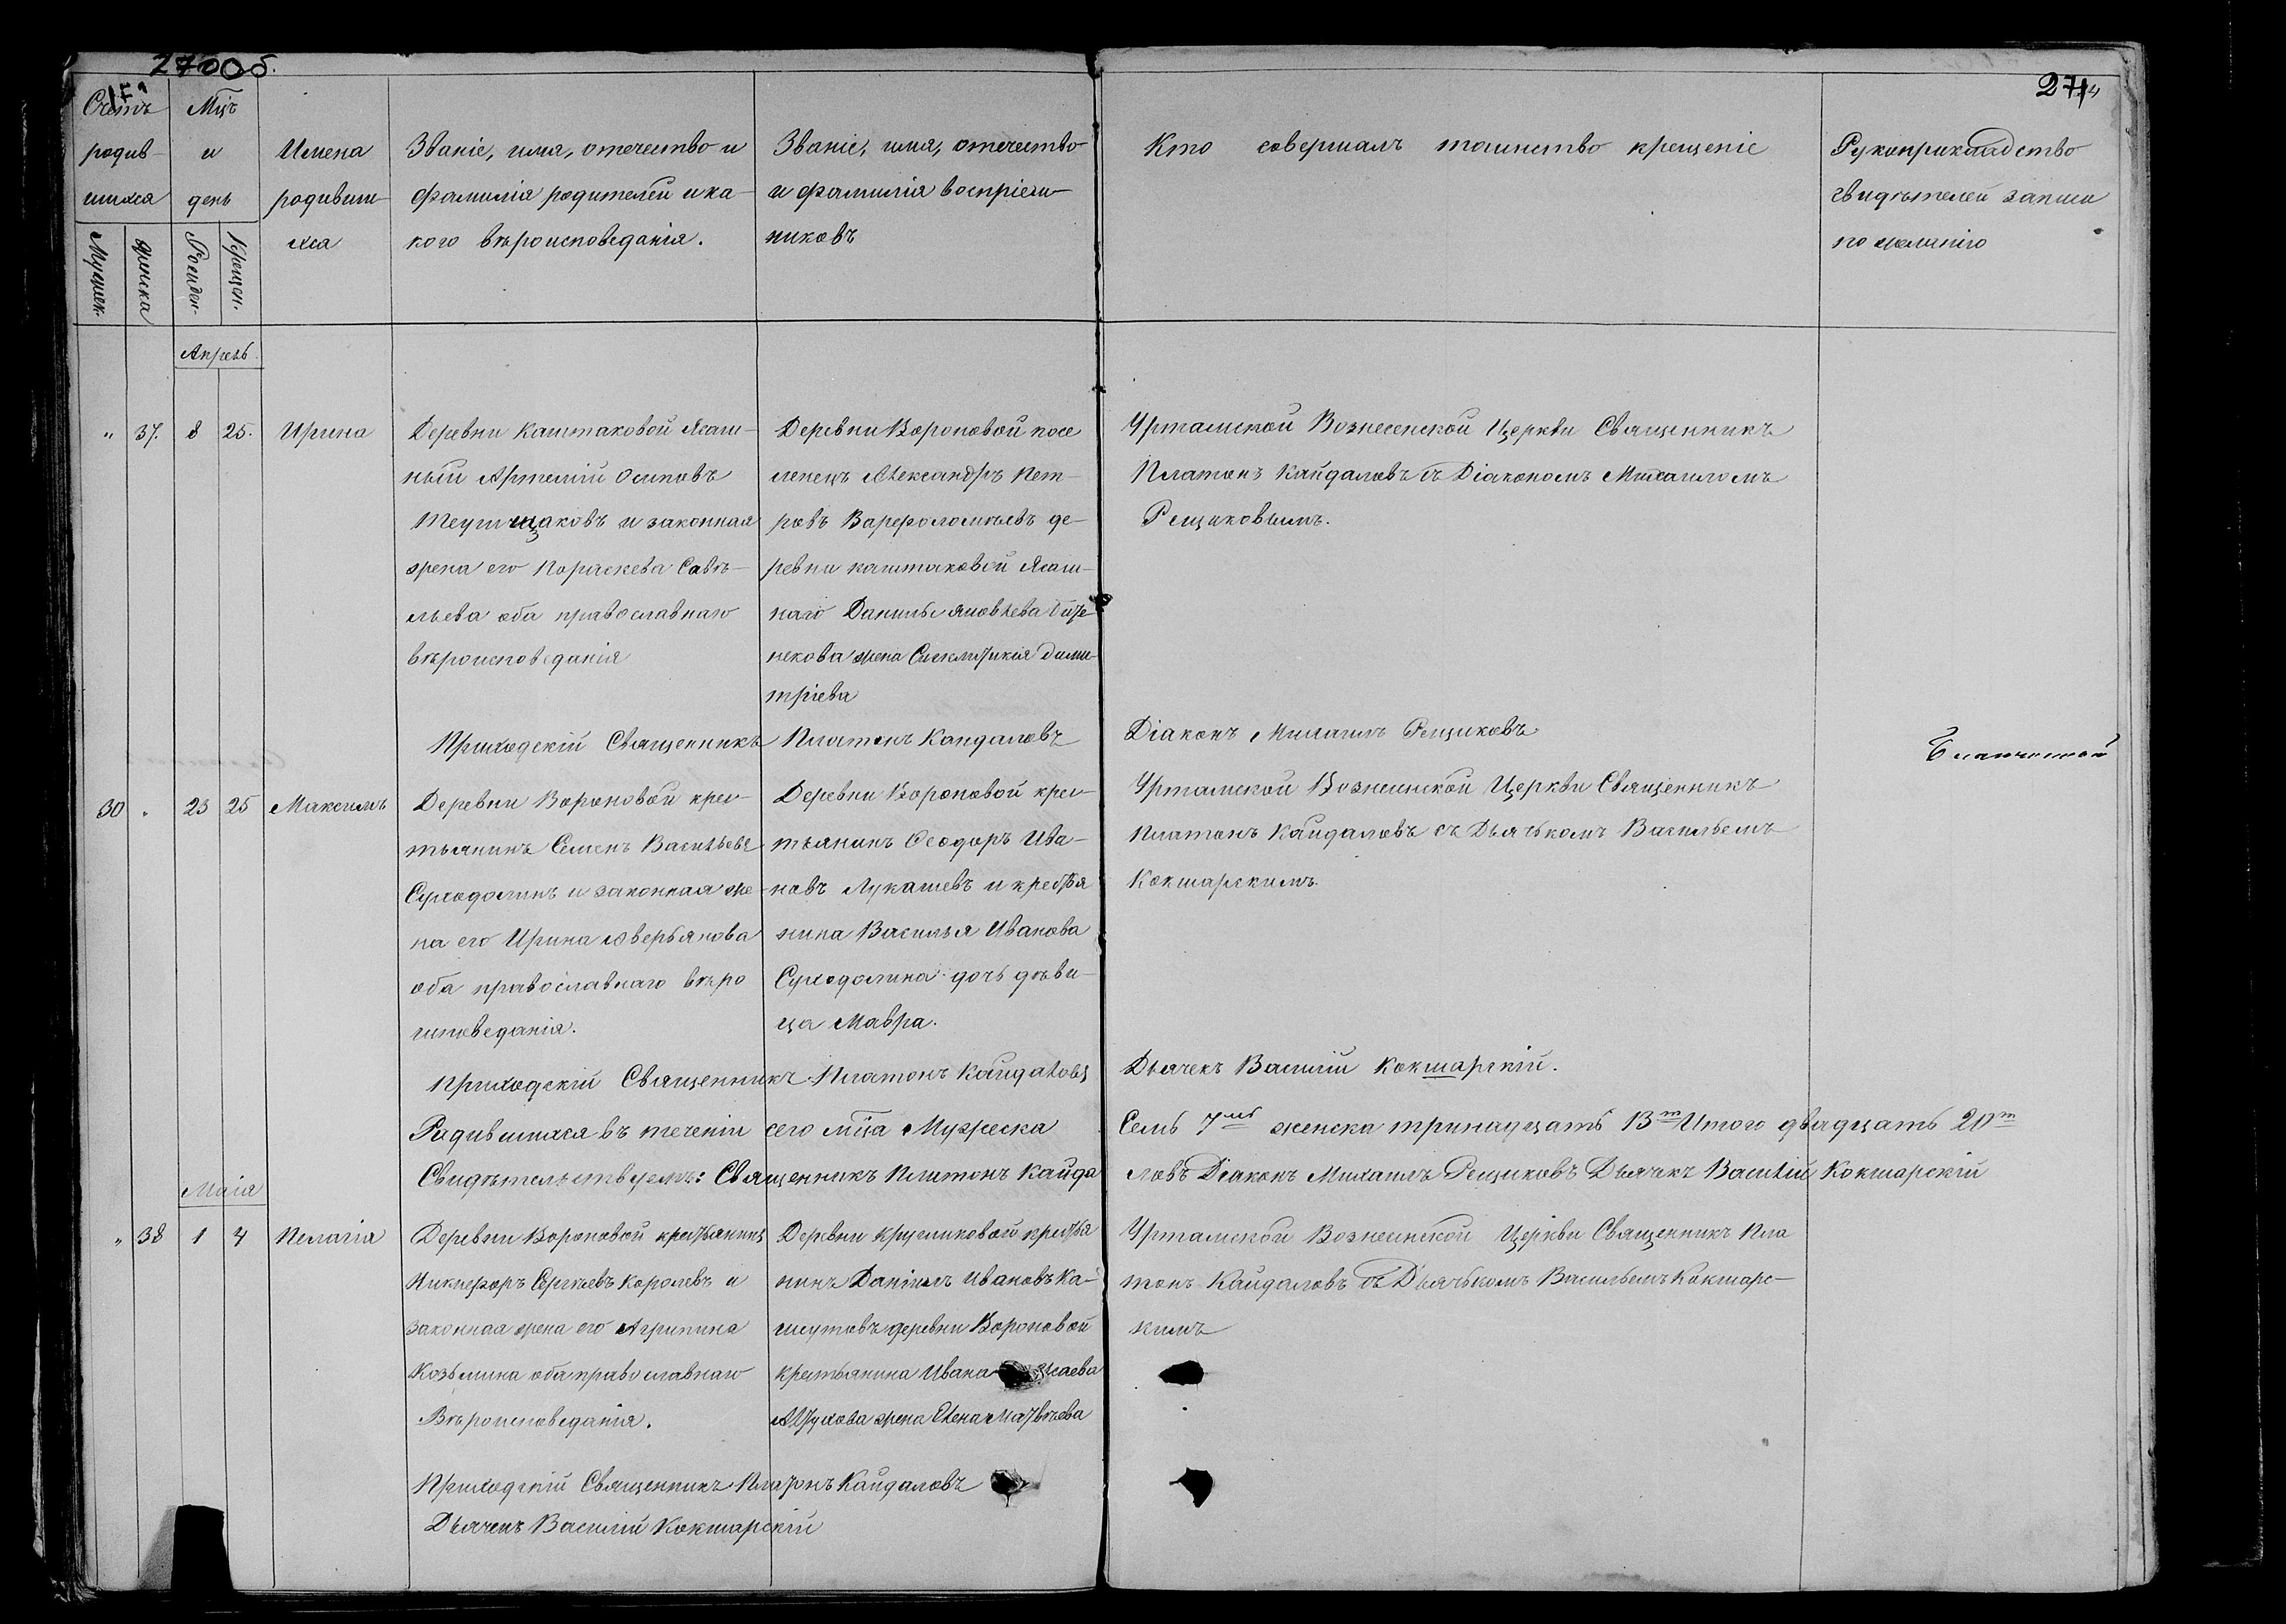 270об.
271
Счетъ родив- шихся
Мцъ и день
Имена родивши- хся
Званіе, имя, отечество и
фамилія родителей и ка-
кого вѣроисповеданія.
Званіе, имя, отечество
и фамилія воспріем-
никовъ
Кто совершалъ таинство крещеніе
Рукоприкладство
свидѣтелей записи
по желанію
Мужеск.
Женска
Рожден.
Крещен.
Апрель
" 37. 8 25. Ирина
Деревни Каштаковой Ясаш-
ный Артемій Осиповъ
и законная
жена его Пораскева Савѣ-
льева оба православнаго
вѣроисповеданія
Деревни Вороновой посе
ленецъ Александръ Пет-
ровъ Варфоломѣевъ де-
ревни каштаковой Ясаш-
наго Данилы Яковлева
жена Сиклитикія Дими-
тріева
Уртамской Вознесенской Церкви Священникъ
Платонъ Кайдаловъ съ Діакономъ Михаиломъ
Рещиковымъ.
Приходскій Священникъ Платонъ Кайдаловъ
Діаконъ Михаилъ Рещиковъ
30 " 23 25 Максимъ
Деревни Вороновой крес-
тьянинъ Семенъ Васильевъ
Суходолинъ и законная же-
на его Ирина Аверьянова
оба православнаго вѣро
исповеданія.
Деревни Вороновой крес-
тьянинъ Ѳеодоръ Ива-
новъ Лукашевъ и крестья
нина Василья Иванова
Суходолина дочь дѣви-
ца Мавра.
Уртамской Вознесенской Церкви Священникъ
Платонъ Кайдаловъ съ Дьячькомъ Васильемъ
Кокшарскимъ.
Приходскій Священникъ Платонъ Кайдаловъ
Дьячекъ Василій Кокшарскій.
Родившихся въ теченіи сего мца Мужеска Семь 7мь женска тринадцать 13ть Итого двадцать 20ть
Свидѣтельствуемъ: Священникъ Платонъ Кайдаловъ Діаконъ Михаилъ Рещиковъ Дьячекъ Василій Кокшарскій
Маія
" 38 1 4 Пелагія
Деревни Вороновой крестьянинъ
Никифоръ Сергѣевъ Королевъ и
законная жена его Агрипина
Козьмина оба православнаго
Вѣроисповеданія.
Деревни Кругликовой крестья
нинъ Даніилъ Ивановъ Ка-
шутовъ деревни Вороновой
крестьянина Ивана
жена Елена Матвѣева
Уртамской Вознесенской Церкви Священникъ Пла
тонъ Кайдаловъ съ Дьячькомъ Васильемъ Кокшарс-
кимъ
Приходскій Священникъ Платонъ Кайдаловъ
Дьячекъ Василій Кокшарскій